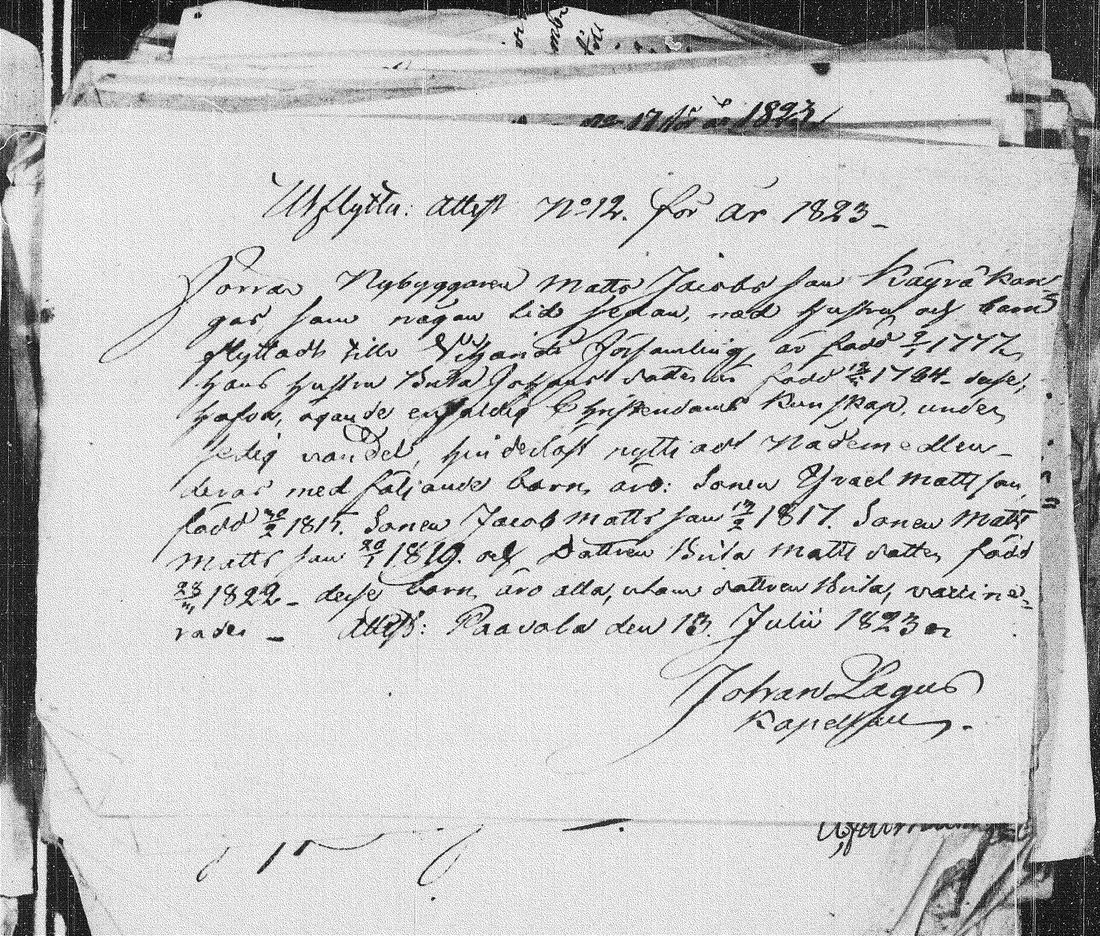 N:o 17 för år 1823
Utflyttn: Attest N:o 12. för År 1823 –
Förra Nybyggaren Matts Jacobs Son Käyräkan
gas som någon tid sedan, med hustru och barn
flyttadt till Församling, är född 2/1 1777,
hans hustru Brita Johans dotter är född 1784 – desse,
hafva, ägande enfaldig Christendoms kunskap, under
sedig vandel, hinderlöst nyttjadt Nådemedlen –
deras med följande barn, äro: Sonen Israel Matts son,
född 1815. Sonen Jacob Matts son 1817. Sonen Matts
Matts son 1819. och Dottren Brita Matts dotter född
1822 – desse barn äro alla, utom dottren Brita, vaccine-
rade – Attest: Paavola den 13. Julii 1823
Johan Lagus
Kapellan.